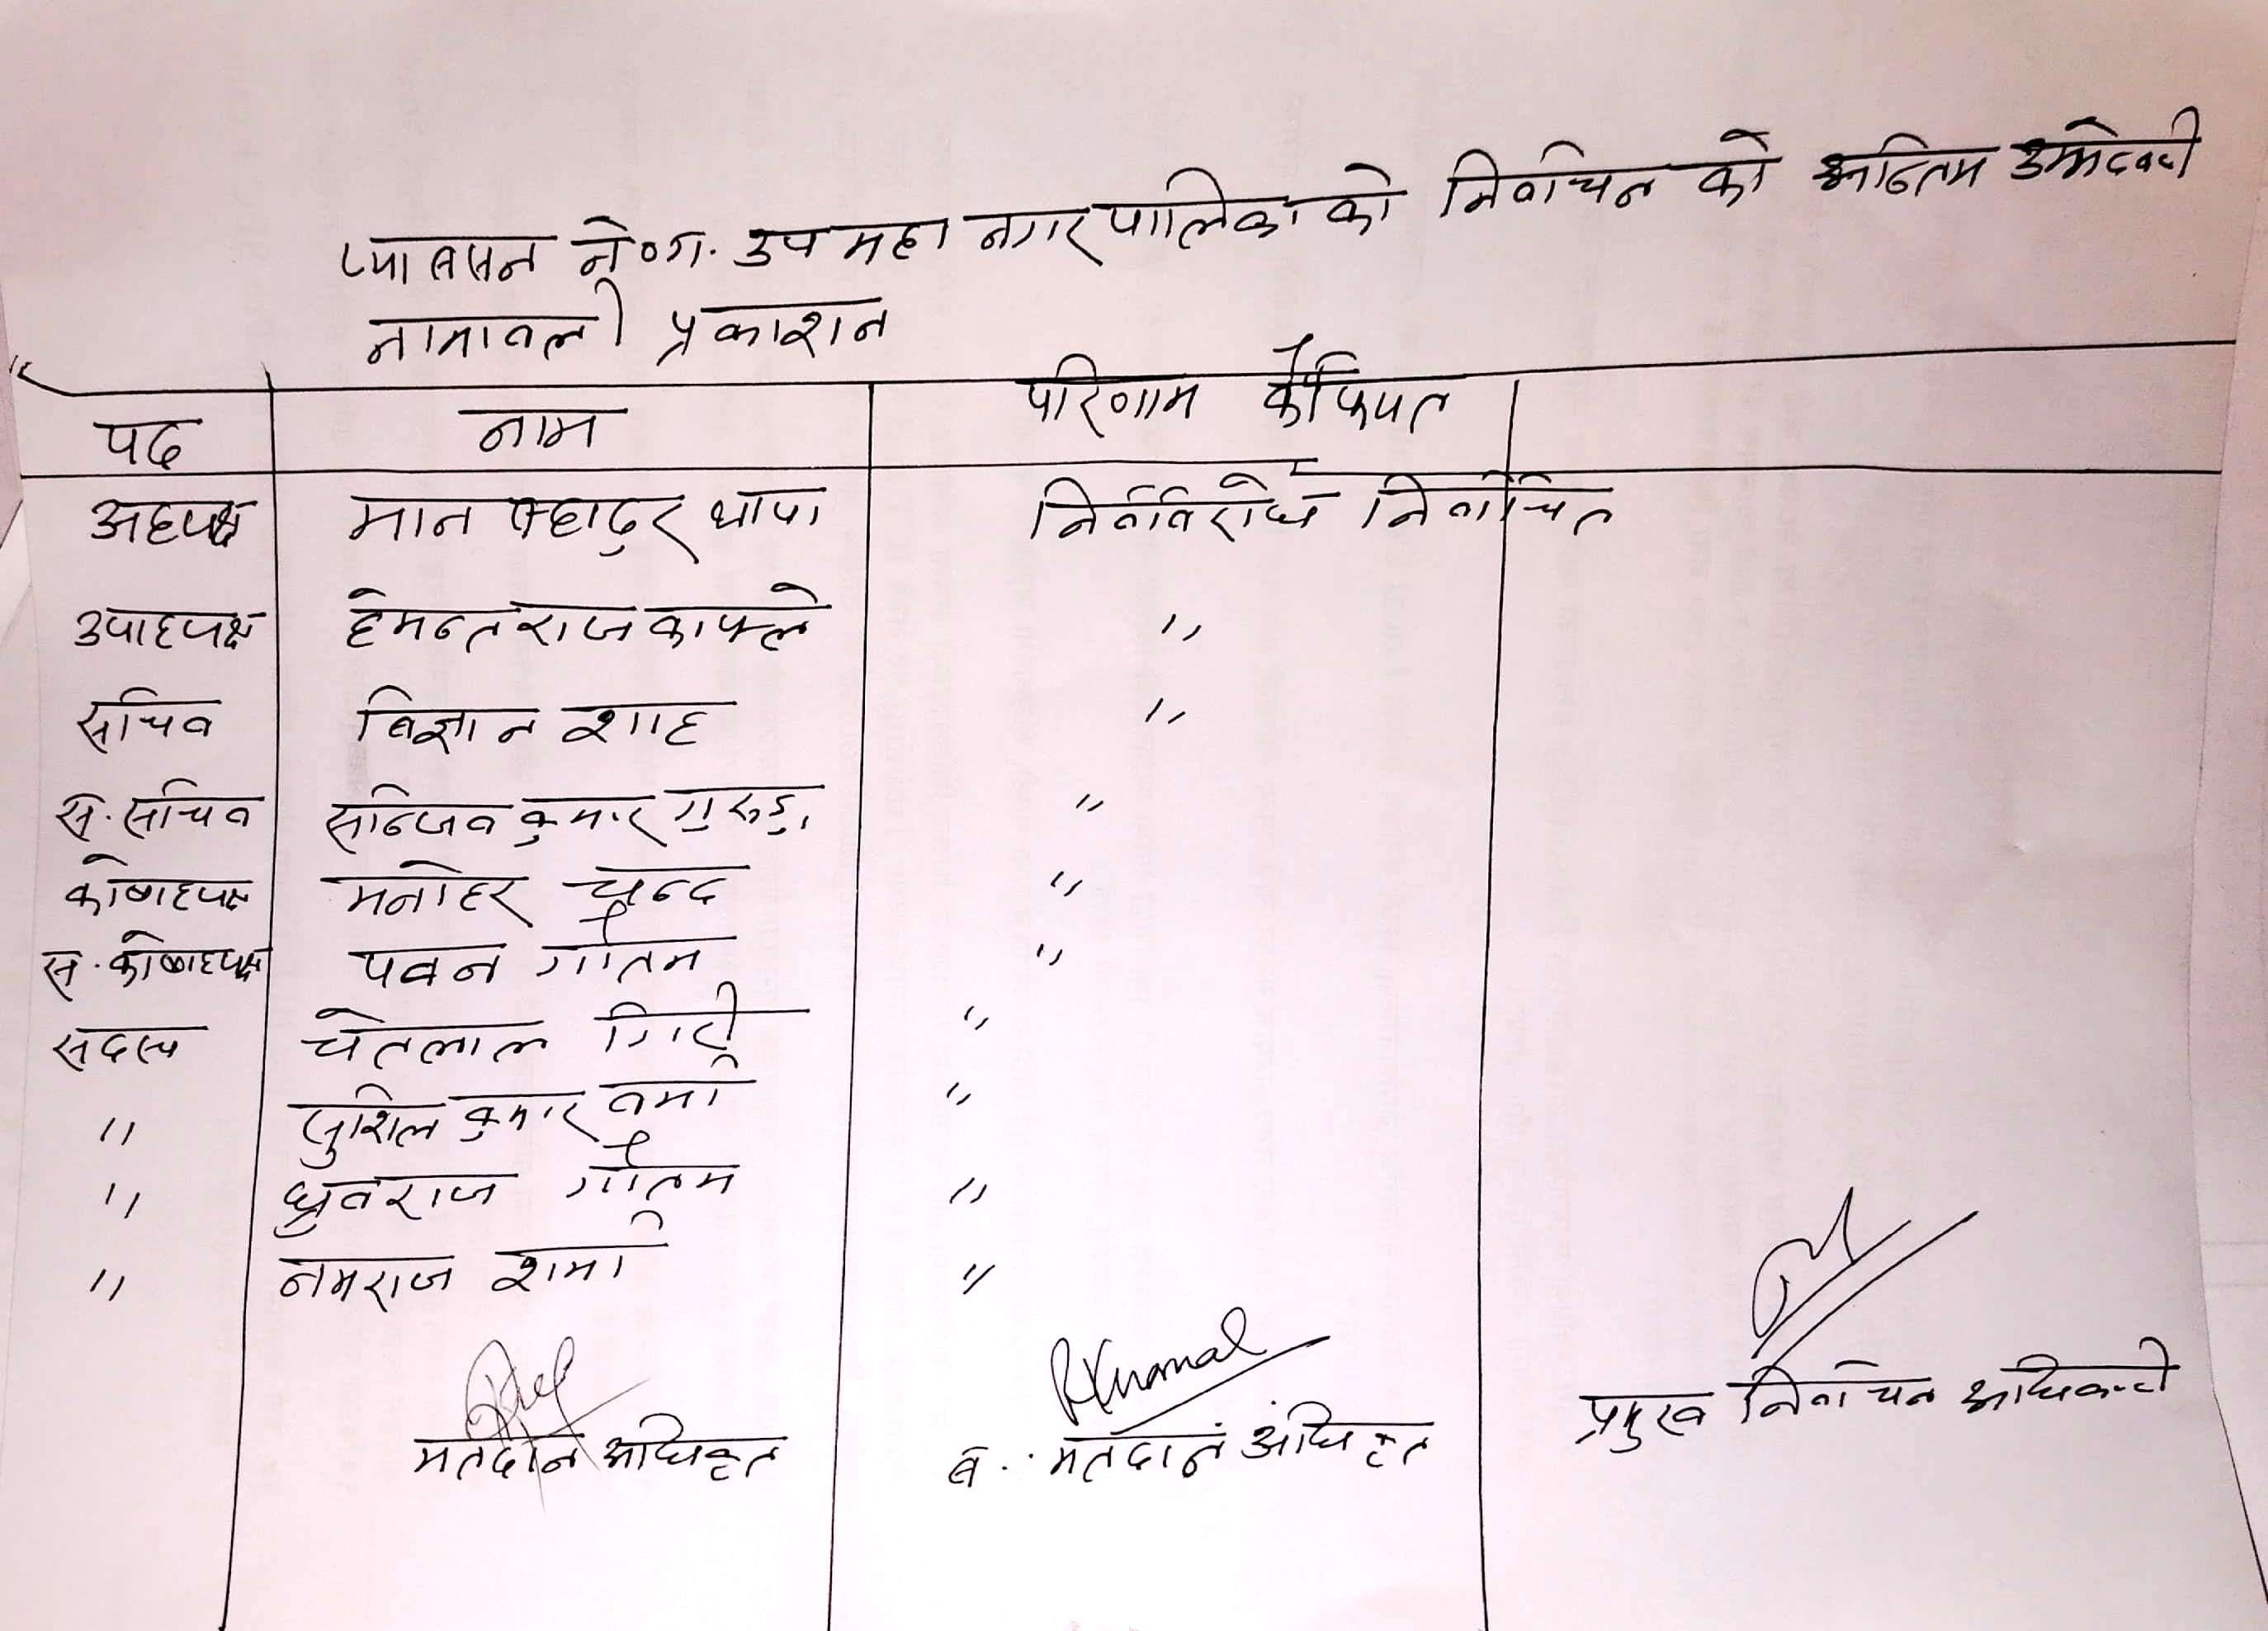 प्याब्सन ने०ग. उप महा नगरपालिका को निर्वाचन को अन्तिम उम्मेदवारी
नामावली प्रकाशन
पद नाम परिणाम कैफियत
अध्यक्ष मान बहादुर थापा निर्विरोध निर्वाचित
उपाध्यक्ष हेमन्तराज काफ्ले "
सचिव बिज्ञान शाह "
स. सचिव सन्जिव कुमार गुरुङ "
कोषाध्यक्ष मनोहर चन्द "
स. कोषाध्यक्ष पवन गौतम "
सदस्य चेतलाल गिरी "
" सुशिल कुमार वर्मा "
" ध्रुवराज गौतम "
" नमराज शर्मा "
मतदान अधिकृत
स. मतदान अधिकृत
प्रमुख निर्वाचन अधिकारी